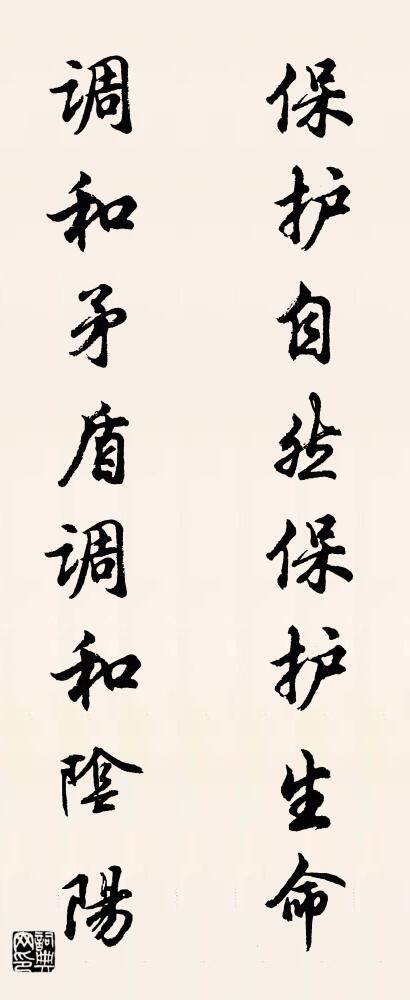 保护自然保护生命
调和矛盾调和陰陽